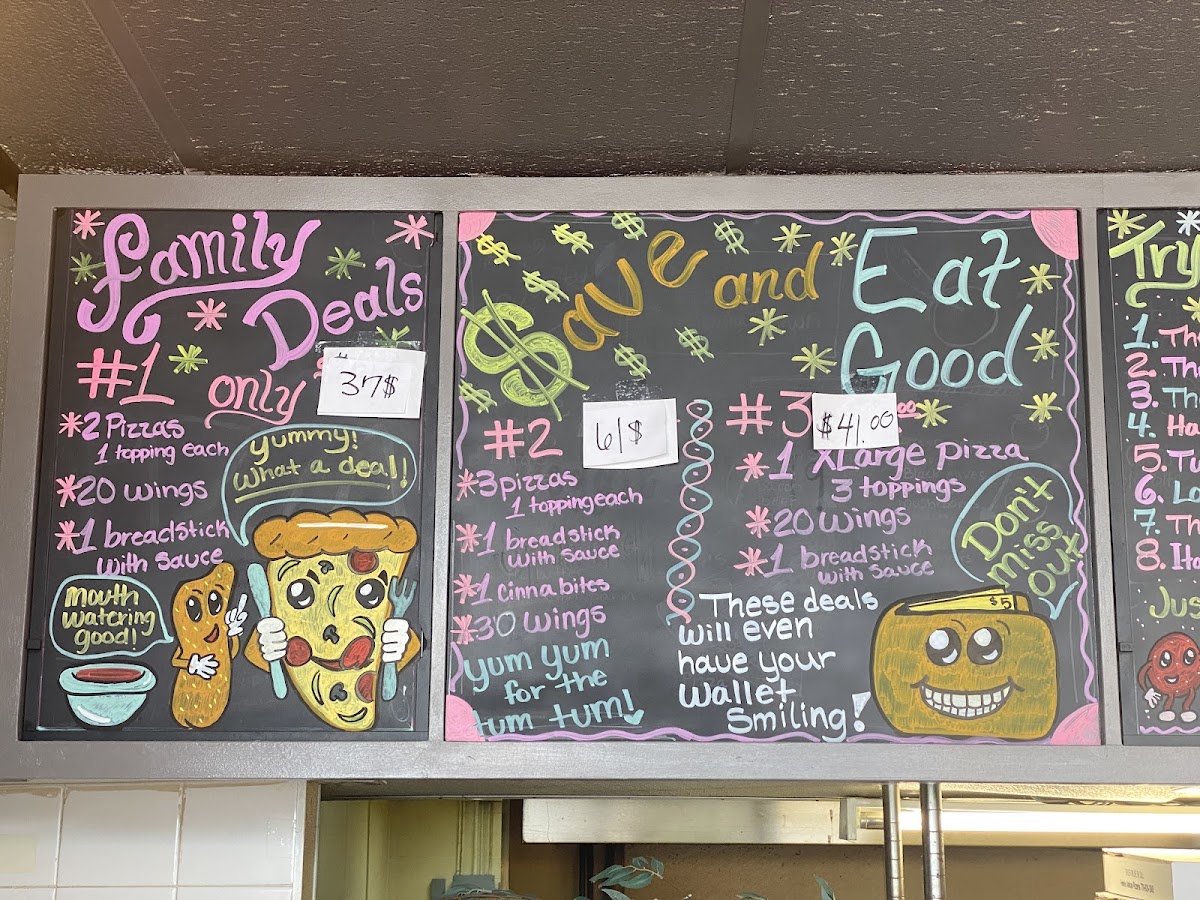 Family
Deals
#1
only
37$
*2 Pizzas
1 topping each
*20 wings
*1 breadstick
with sauce
Yummy!
What a deal!!
Mouth
Watering
good!
$ave and Eat
Good
#2
61$
*3 pizzas
1 topping each
*1 breadstick
with sauce
*1 cinna bites
*30 wings
yum yum
for the
tum tum!
#3
$41.00
*1 XLarge pizza
3 toppings
*20 wings
*1 breadstick
with sauce
Don't
miss
out
These deals
will even
have your
Wallet
Smiling!
$5
Try
1.
2.
3.
4.
5.
6.
7.
8.